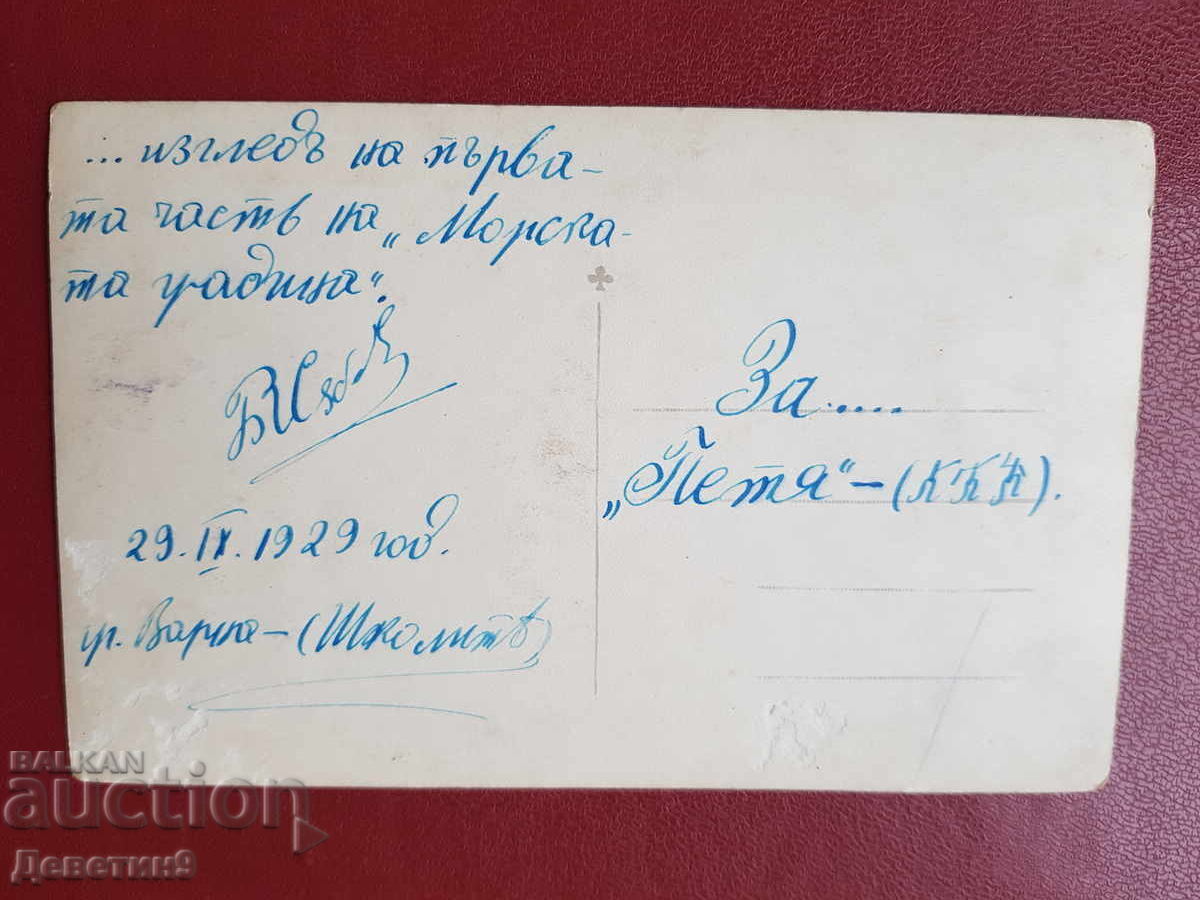 ... изгледъ на първа-
та часть на „Морска-
та градина“.
29. IX. 1929 год.
гр. Варна - (Школитѣ)
За.....
„Петя“ - (ККК).
BALKAN
auction
Деветин9